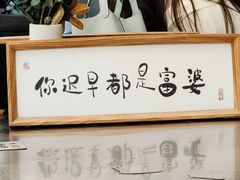 你迟早都是富婆